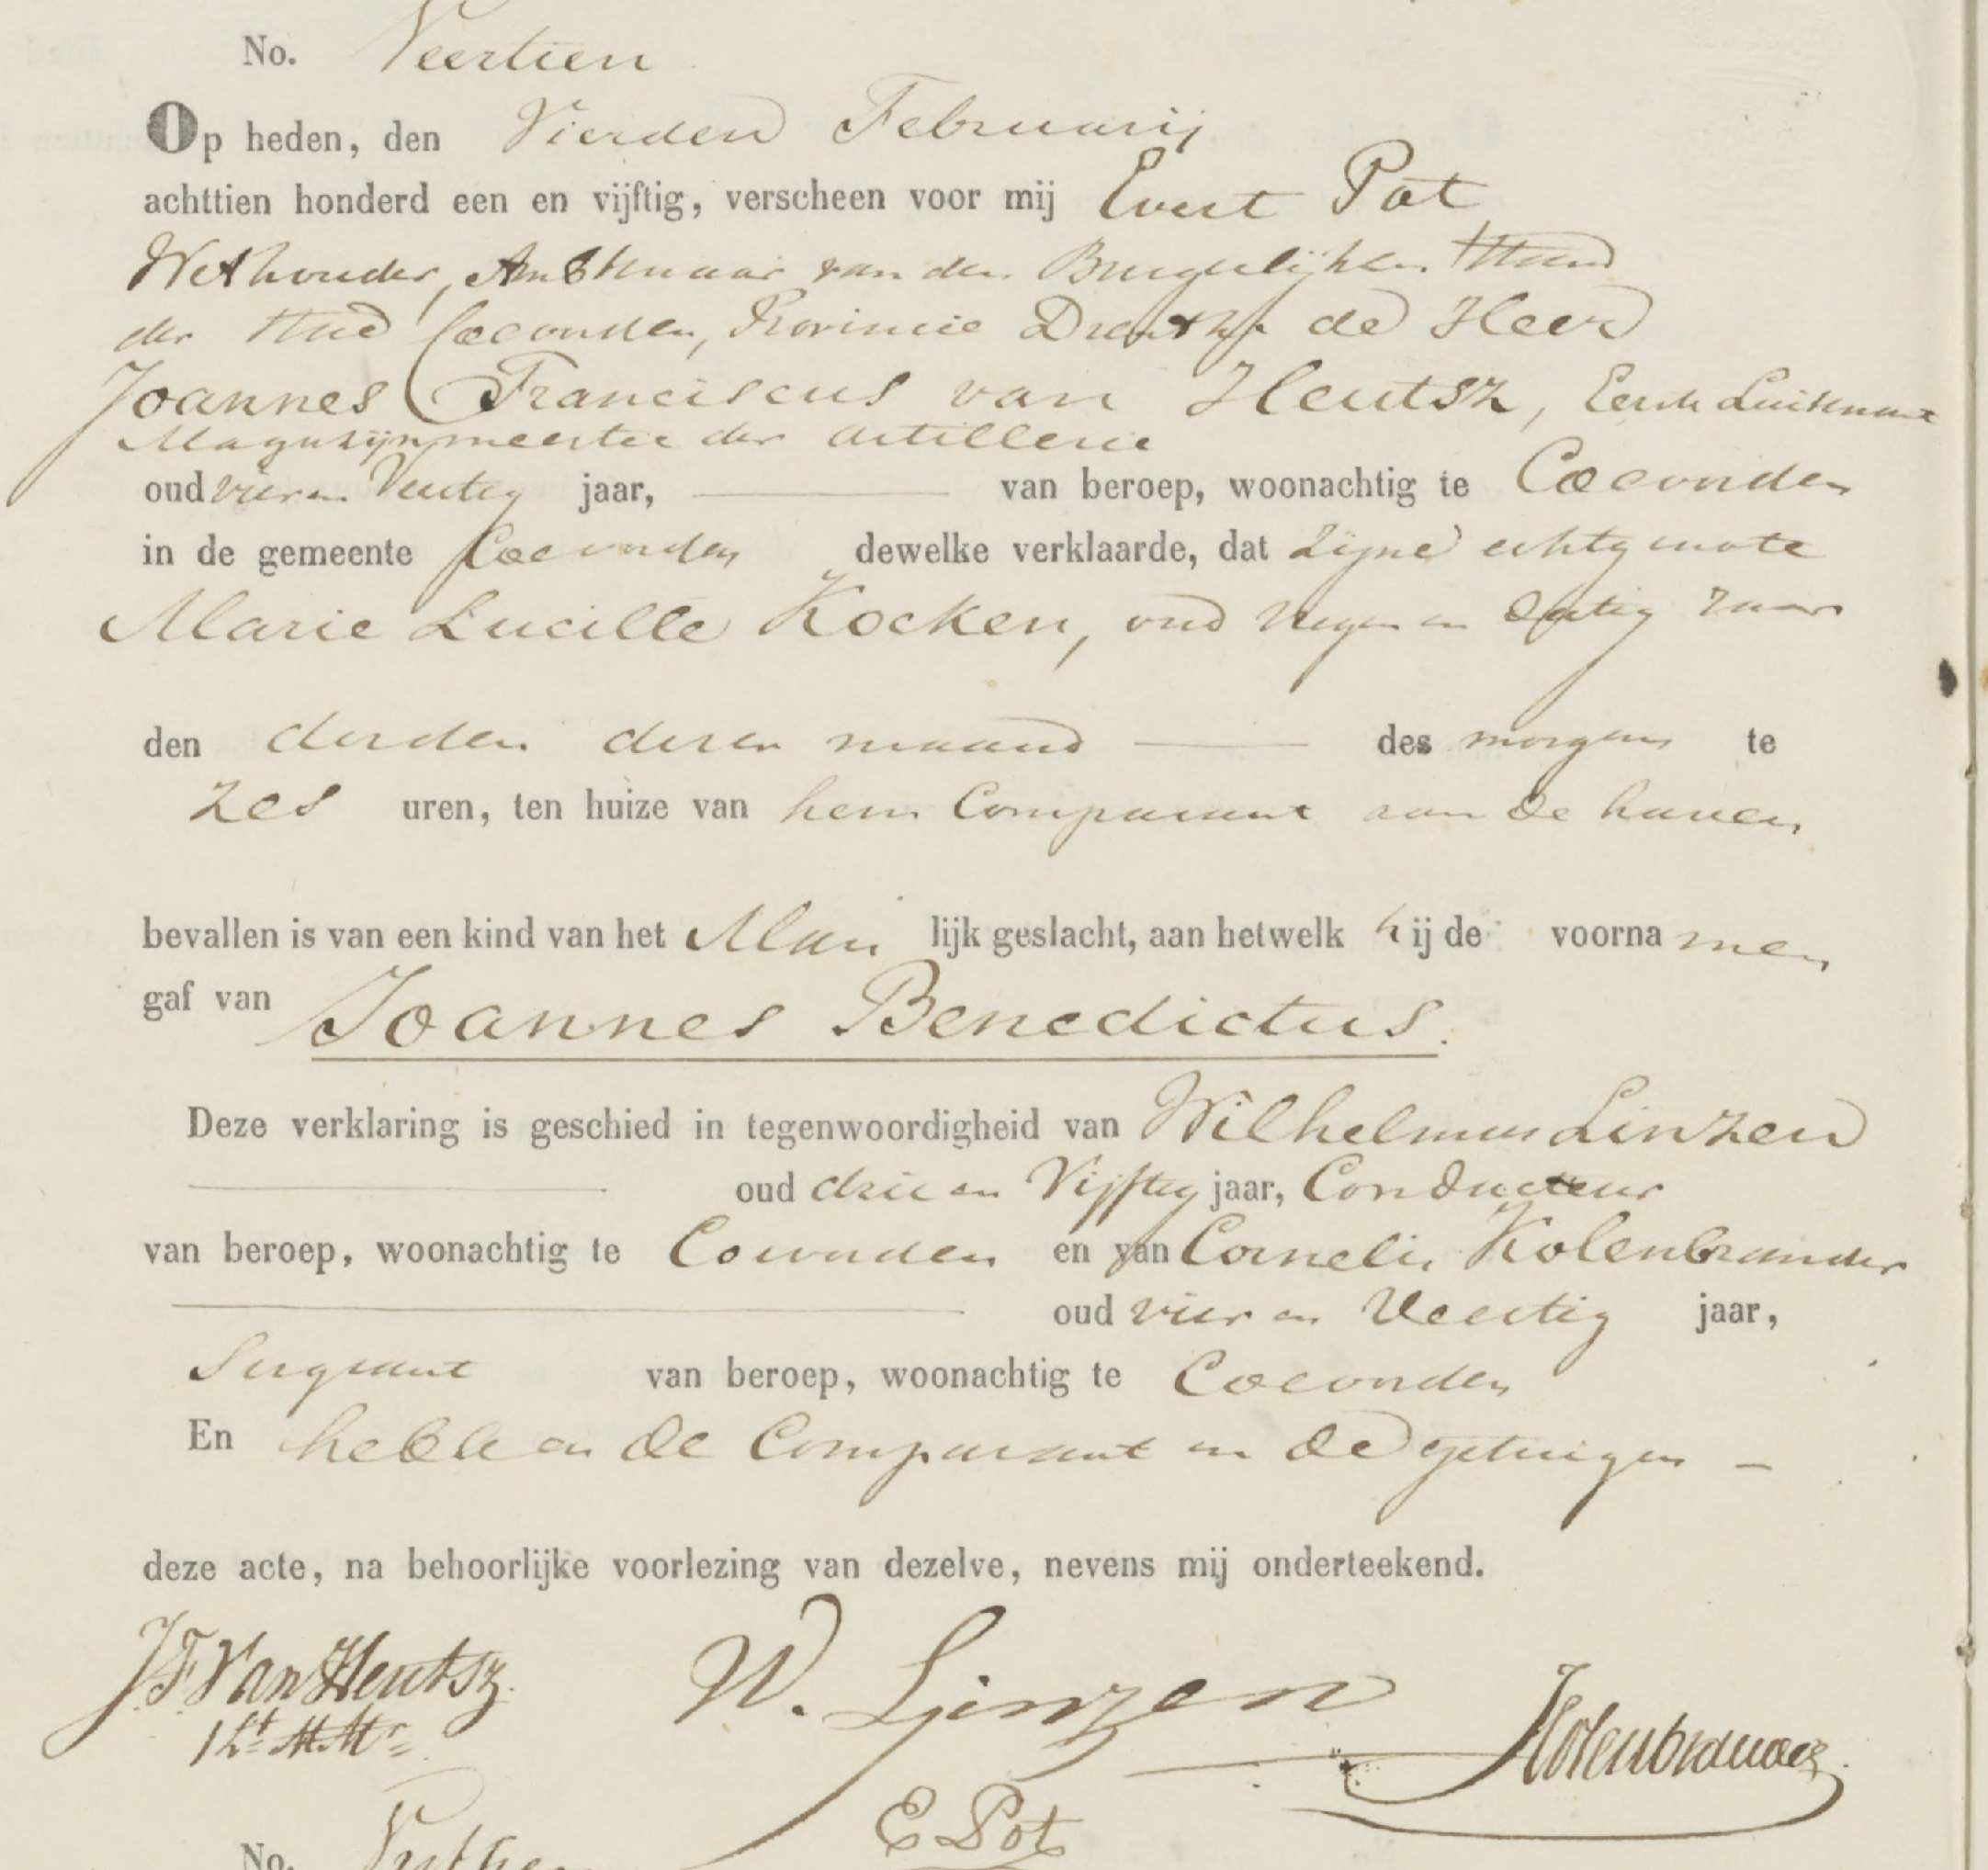 No. Veertien
Op heden, den Vierden Februarij
achttien honderd een en vijftig, verscheen voor mij Evert Pot
Wethouder, Ambtenaar van den Burgelijken Stand
der Stad Coevorden, Provincie Drenthe de Heer
Joannes Franciscus van Heutsz, Eerste Luitenant
Magazijnmeester der Artillerie
oud vier en Veertig jaar, van beroep, woonachtig te Coevorden
in de gemeente Coevorden dewelke verklaarde, dat zijne echtgenote
Marie Lucille Kocken, oud negen en dertig Jaar
den derden dezer maand des morgens te
zes uren, ten huize van hem Comparant aan de haven
bevallen is van een kind van het Man lijk geslacht, aan hetwelk hij de voorna men
gaf van Joannes Benedictus.
Deze verklaring is geschied in tegenwoordigheid van Wilhelmus Linzen
oud drie en Vijftig jaar, Conducteur
van beroep, woonachtig te Coevorden en van Cornelis Kolenbrander
oud vier en Veertig jaar,
Sergeant van beroep, woonachtig te Coevorden
En hebben de Comparant en de getuigen
deze acte, na behoorlijke voorlezing van dezelve, nevens mij onderteekend.
JF Van Heutsz. W. Linzen Kolenbrander
1 Lt MMr
E Pot
No.